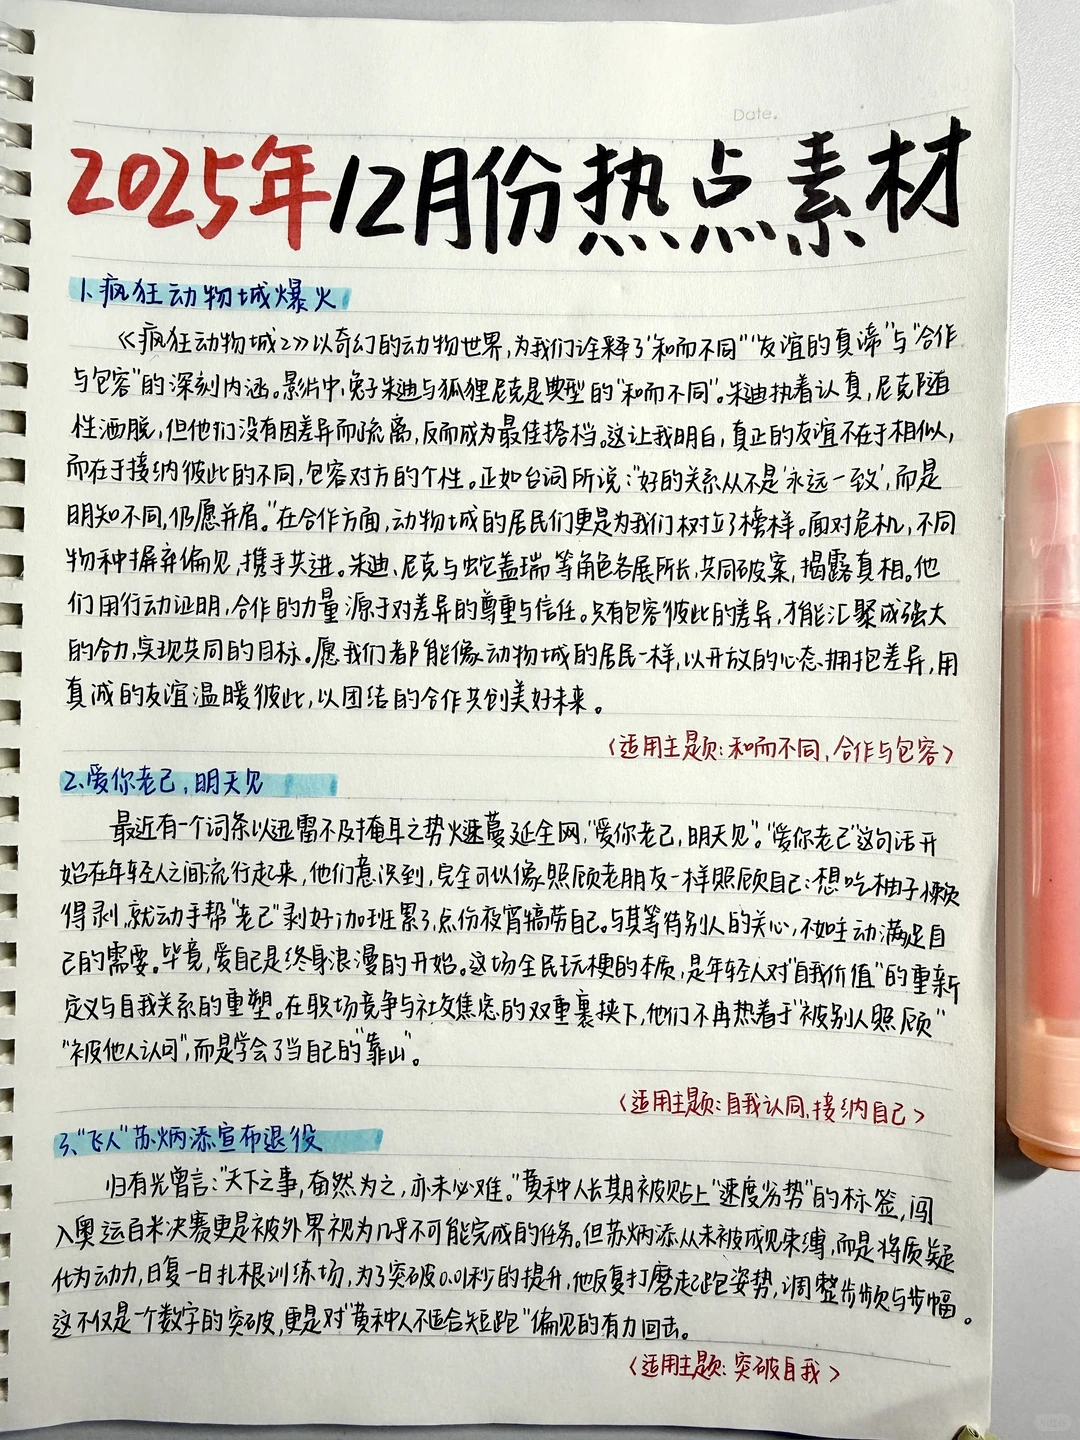 Date.
2025年12月份热点素材
1、疯狂动物城爆火
《疯狂动物城2》以奇幻的动物世界,为我们诠释了"和而不同""友谊的真谛"与"合作
与包容"的深刻内涵。影片中,兔子朱迪与狐狸尼克是典型的"和而不同"。朱迪执着认真,尼克随
性洒脱,但他们没有因差异而疏离,反而成为最佳搭档。这让我明白,真正的友谊不在于相似,
而在于接纳彼此的不同,包容对方的个性。正如台词所说:"好的关系从不是'永远一致',而是
明知不同,仍愿并肩。"在合作方面,动物城的居民们更是为我们树立了榜样。面对危机,不同
物种摒弃偏见,携手共进。朱迪、尼克与蛇盖瑞等角色各展所长,共同破案,揭露真相。他
们用行动证明,合作的力量源于对差异的尊重与信任。只有包容彼此的差异,才能汇聚成强大
的合力,实现共同的目标。愿我们都能像动物城的居民一样,以开放的心态拥抱差异,用
真诚的友谊温暖彼此,以团结的合作共创美好未来。
〈适用主题:和而不同,合作与包容〉
2、爱你老己,明天见
最近有一个词条以迅雷不及掩耳之势火速蔓延全网,"爱你老己,明天见"。"爱你老己"这句话开
始在年轻人之间流行起来,他们意识到,完全可以像照顾老朋友一样照顾自己:想吃柚子懒
得剥,就动手帮"老己"剥好;加班累了,点份夜宵犒劳自己。与其等待别人的关心,不如主动满足自
己的需要。毕竟,爱自己是终身浪漫的开始。这场全民玩梗的本质,是年轻人对"自我价值"的重新
定义与自我关系的重塑。在职场竞争与社交焦虑的双重裹挟下,他们不再热着于"被别人照顾"
"被他人认可",而是学会了当自己的"靠山"。
〈适用主题:自我认同,接纳自己〉
3、"飞人"苏炳添宣布退役
归有光曾言:"天下之事,奋然为之,亦未必难。"黄种人长期被贴上"速度劣势"的标签,闯
入奥运百米决赛更是被外界视为几乎不可能完成的任务。但苏炳添从未被成见束缚,而是将质疑
化为动力,日复一日扎根训练场,为了突破0.01秒的提升,他反复打磨起跑姿势,调整步频与步幅。
这不仅是一个数字的突破,更是对"黄种人不适合短跑"偏见的有力回击。
〈适用主题:突破自我〉